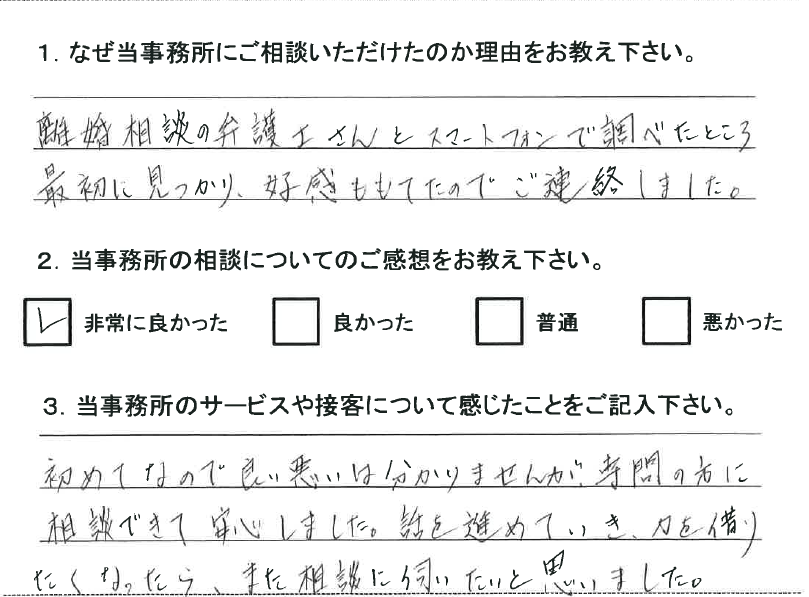 1. なぜ当事務所にご相談いただけたのか理由をお教え下さい。
離婚相談の弁護士さんとスマートフォンで調べたところ
最初に見つかり、好感ももてたのでご連絡しました。
2. 当事務所の相談についてのご感想をお教え下さい。
非常に良かった 良かった 普通 悪かった
3. 当事務所のサービスや接客について感じたことをご記入下さい。
初めてなので良い悪いは分かりませんが、専問の方に
相談できて安心しました。話を進めていき、力を借り
たくなったら、また相談に伺いたいと思いました。